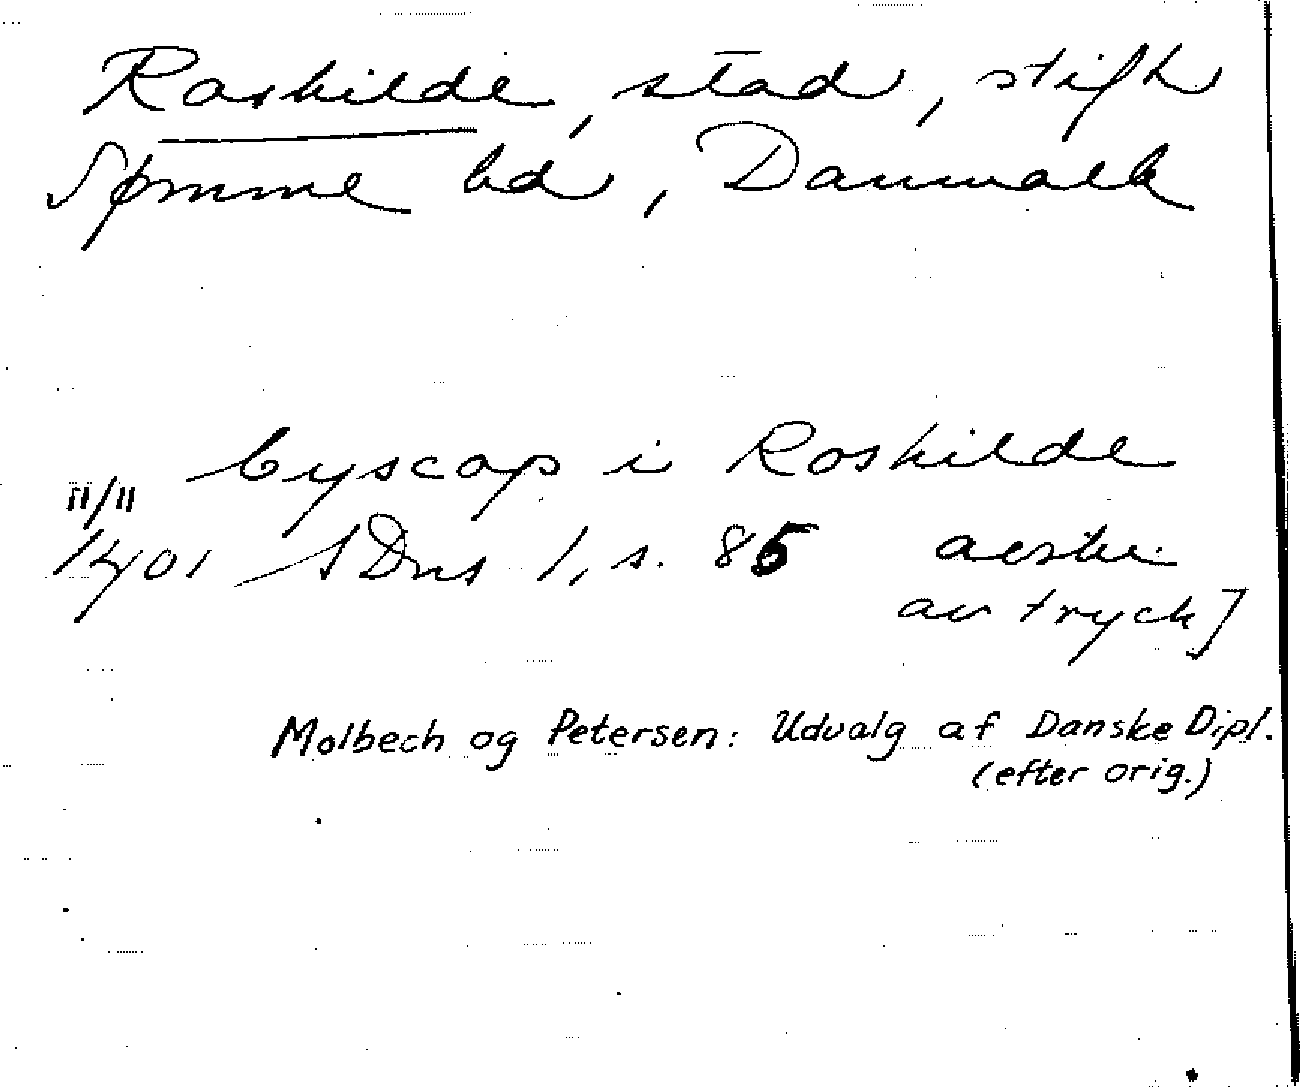 Roskilde, stad, stift
Sømme hd, Danmark
byscop i Roskilde
11/11
1401 SDns 1, s. 85
av tryck]
Molbech og Petersen: Udvalg af Danske Dipl.
(efter orig.)